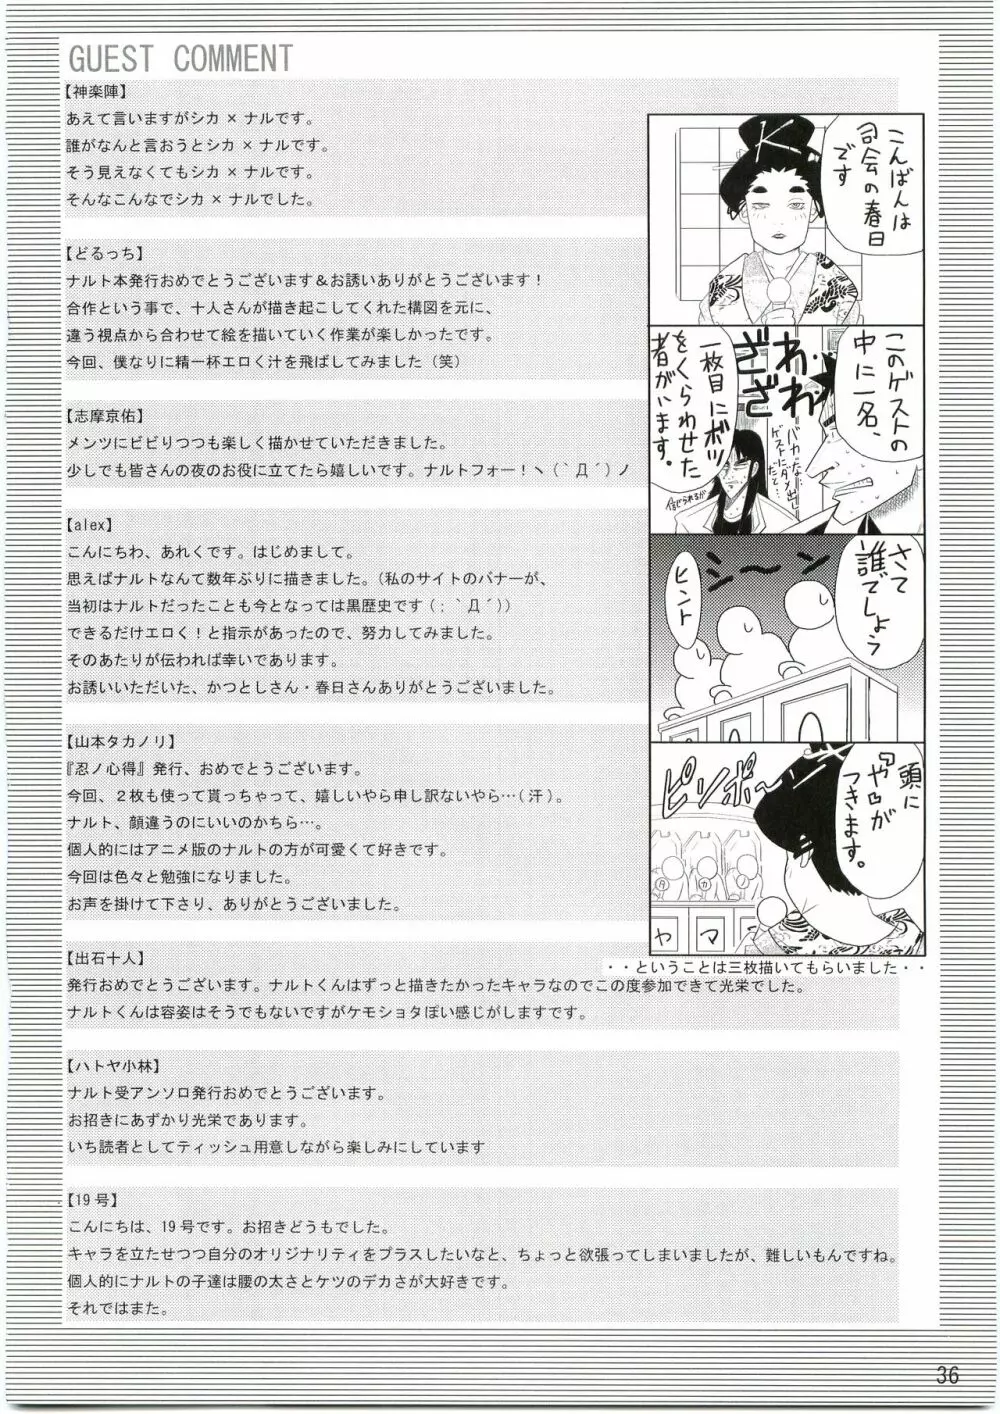 GUEST COMMENT
【神楽陣】
あえて言いますがシカ×ナルです。
誰がなんと言おうとシカ×ナルです。
そう見えなくてもシカ×ナルです。
そんなこんなでシカ×ナルでした。
【どるっち】
ナルト本発行おめでとうございます＆お誘いありがとうございます！
合作という事で、十人さんが描き起こしてくれた構図を元に、
違う視点から合わせて絵を描いていく作業が楽しかったです。
今回、僕なりに精一杯エロく汁を飛ばしてみました（笑）
【志摩京佑】
メンツにビビりつつも楽しく描かせていただきました。
少しでも皆さんの夜のお役に立てたら嬉しいです。ナルトフォー！ヽ(｀Д´)ノ
【alex】
こんにちわ、あれくです。はじめまして。
思えばナルトなんて数年ぶりに描きました。（私のサイトのバナーが、
当初はナルトだったことも今となっては黒歴史です(;｀Д´)）
できるだけエロく！と指示があったので、努力してみました。
そのあたりが伝われば幸いであります。
お誘いいただいた、かつとしさん・春日さんありがとうございました。
【山本タカノリ】
『忍ノ心得』発行、おめでとうございます。
今回、２枚も使って貰っちゃって、嬉しいやら申し訳ないやら…（汗）。
ナルト、顔違うのにいいのかちら…。
個人的にはアニメ版のナルトの方が可愛くて好きです。
今回は色々と勉強になりました。
お声を掛けて下さり、ありがとうございました。
【出石十人】
発行おめでとうございます。ナルトくんはずっと描きたかったキャラなのでこの度参加できて光栄でした。
ナルトくんは容姿はそうでもないですがケモショタぽい感じがしますです。
【ハトヤ小林】
ナルト受アンソロ発行おめでとうございます。
お招きにあずかり光栄であります。
いち読者としてティッシュ用意しながら楽しみにしています
【19号】
こんにちは、19号です。お招きどうもでした。
キャラを立たせつつ自分のオリジナリティをプラスしたいなと、ちょっと欲張ってしまいましたが、難しいもんですね。
個人的にナルトの子達は腰の太さとケツのデカさが大好きです。
それではまた。
K
こんばんは
司会の春日
です
このゲストの
中に一名、
ざわ‥
ざわ‥
一枚目にボツ
をくらわせた
者がいます。
バカなっ‥
ゲストにダメ出し
だと…
信じられるか
さて
誰でしょう
シーン
ヒント
頭に
『ヤ』が
つきます。
ピンポーン
タ
カ
ノ
ヤ
マ
・・ということは三枚描いてもらいました・・
36